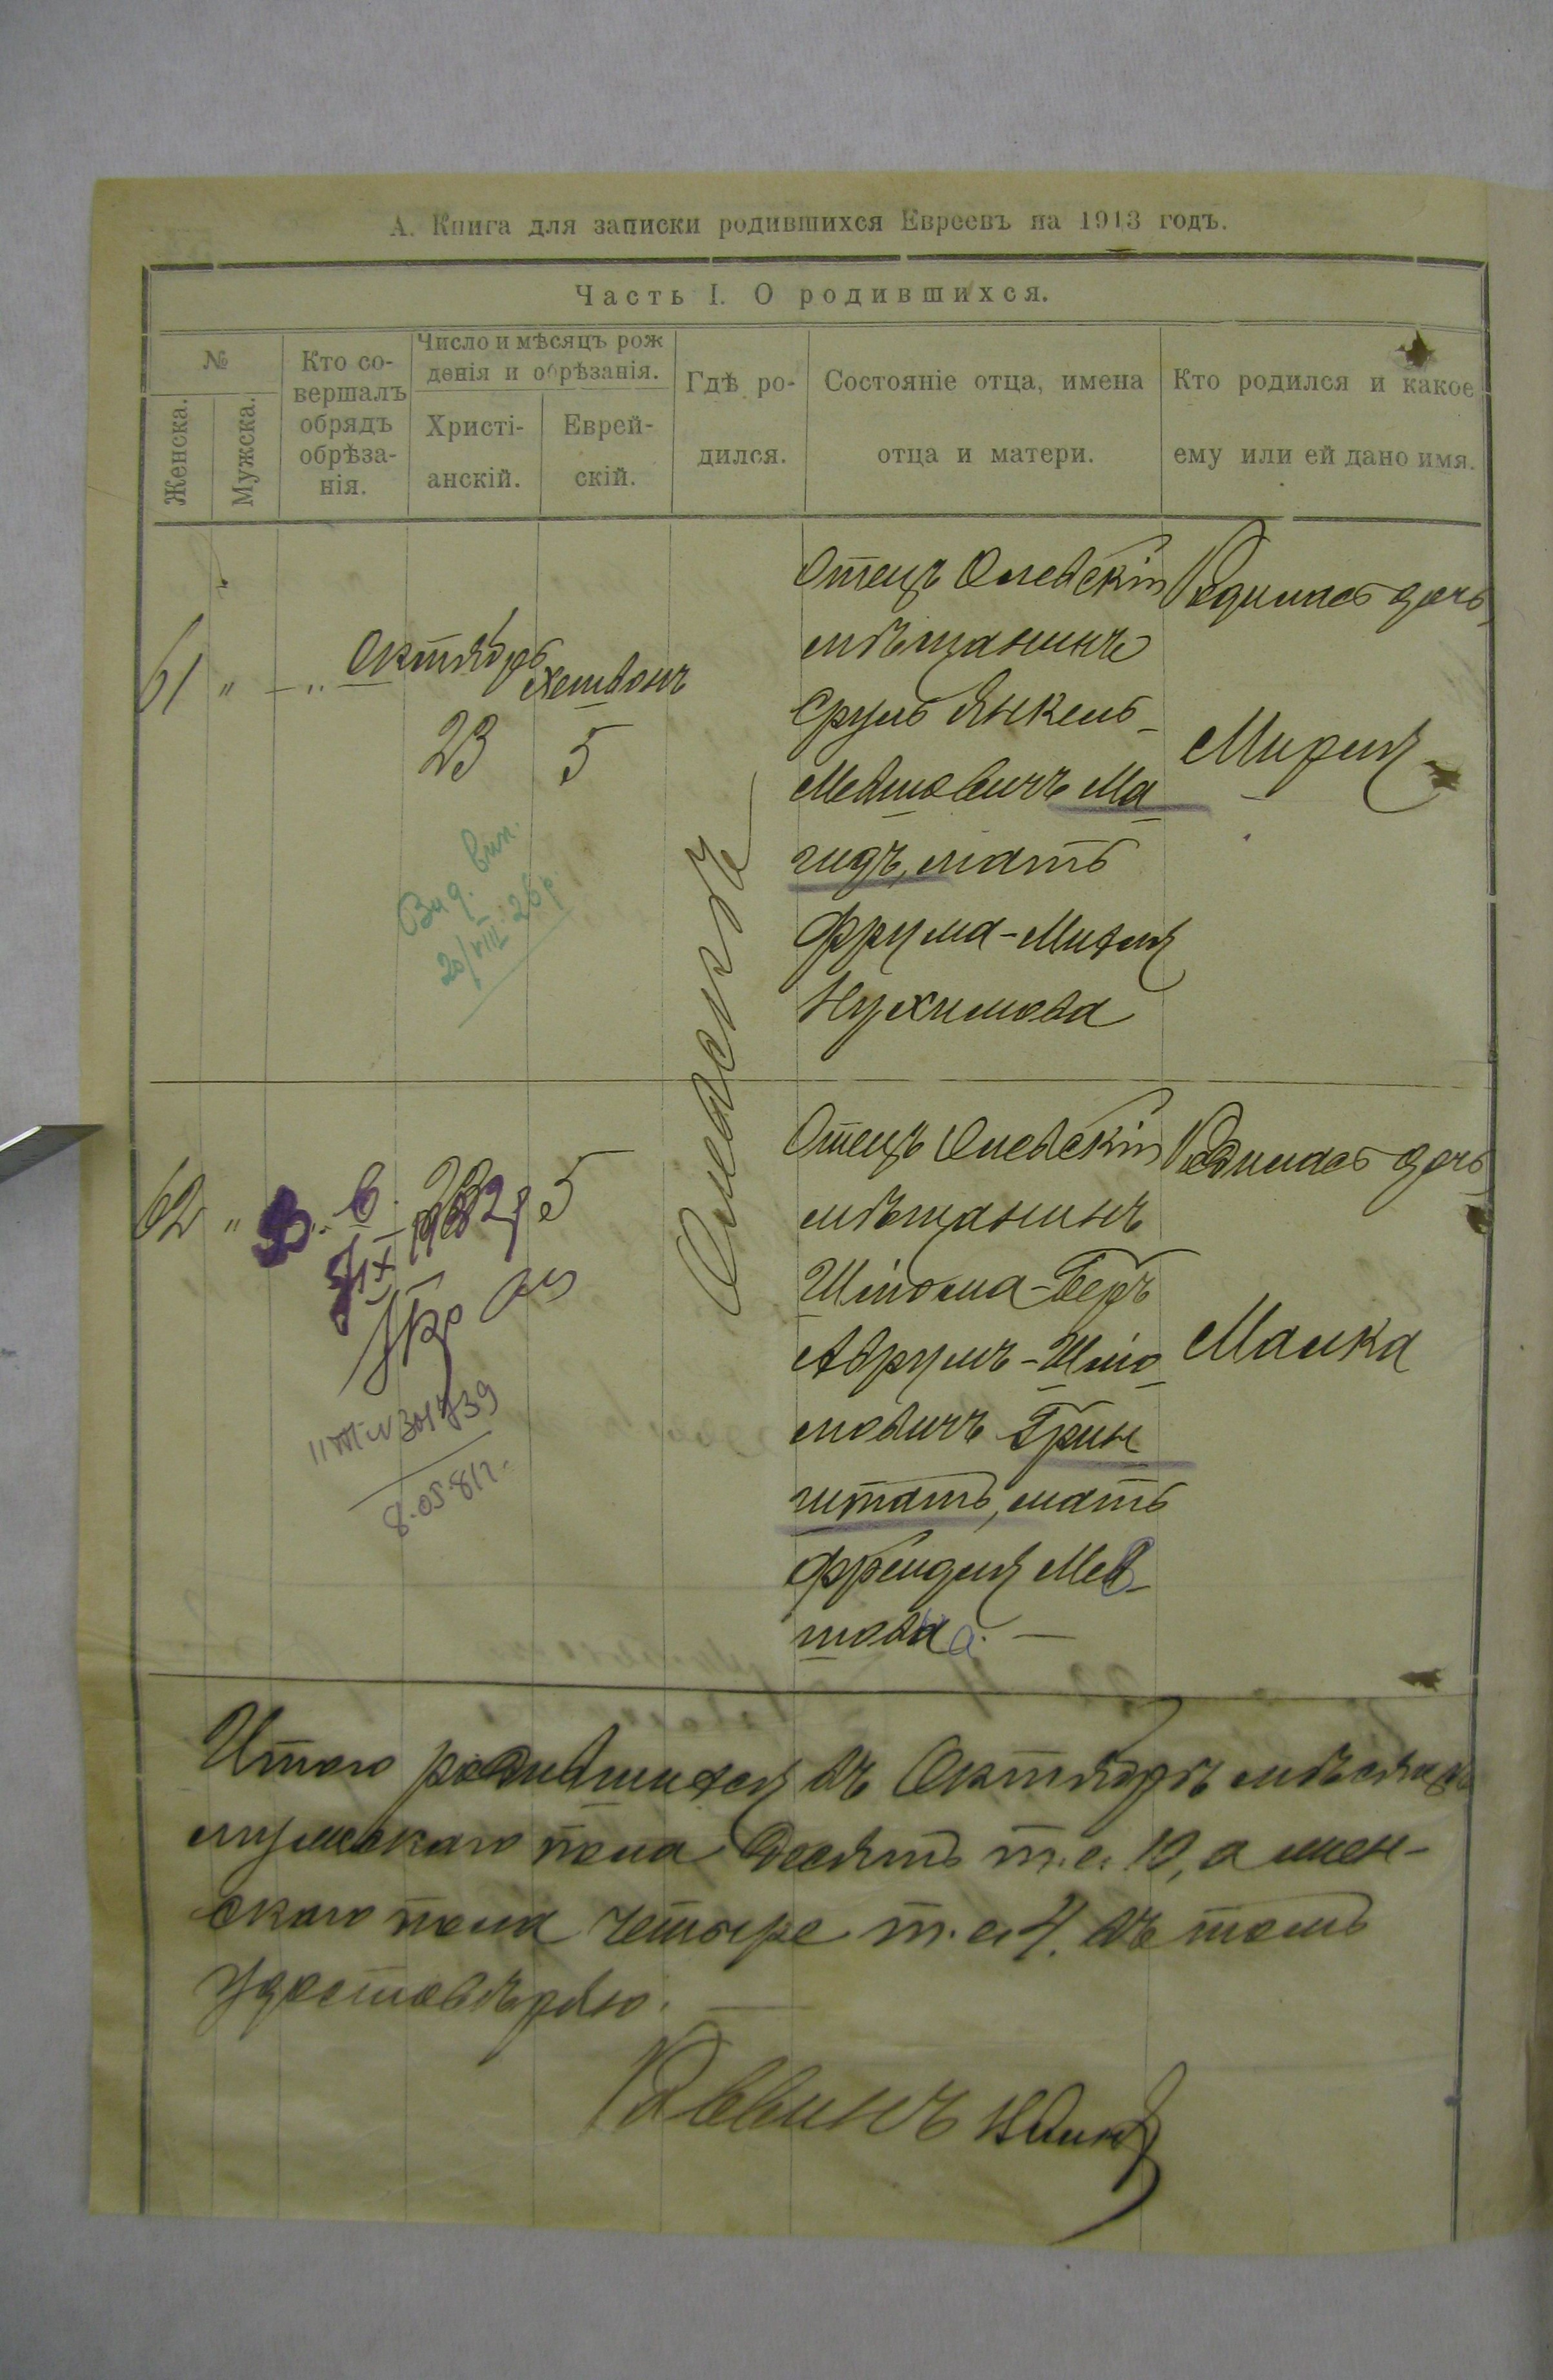 А. Книга для записки родившихся Евреевъ на 1913 годъ.
Часть I. О родившихся.
№
Женска.
Мужска.
Кто со-
вершалъ
обрядъ
обрѣза-
нія.
Число и мѣсяцъ рож
денія и обрѣзанія.
Христі-
анскій.
Еврей-
скій.
Гдѣ ро-
дился.
Состояніе отца, имена
отца и матери.
Кто родился и какое
ему или ей дано имя.
61 " — "
Октябрь
23
Хешвонъ
5
Олевскъ
Отецъ Олевскій
мѣщанинъ
Сруль Янкель-
Мевшовичъ Ма
гидъ, мать
Фрума-Михля
Нухимова
Родилась дочь
Мирля
Вид. вип.
20/VIII 26р.
62 "
5
Отецъ Олевскій
мѣщанинъ
Шліома-Беръ
Аврумъ-Шліо
мовичъ Грин
штатъ, мать
Фрейдля Мев-
шова
Родилась дочь
Малка
8.05.81г.
Итого родившихся въ Октябрѣ мѣсяцѣ
мужскаго пола десять т.е. 10, а жен-
скаго пола четыре т.е. 4. въ томъ
удостовѣряю. —
Раввинъ